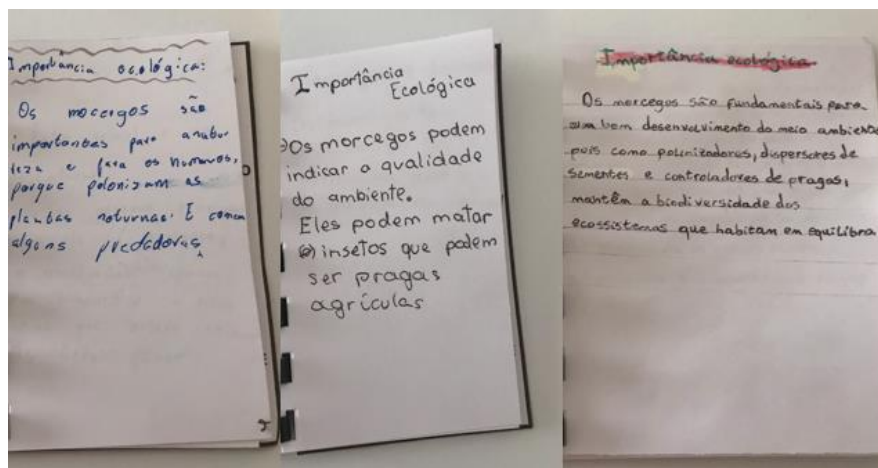 Importância ecológica:
Os morcegos são
importantes para anatu
reza e para os humanos,
porque polonizam as
plantas noturnas. E comem
alguns predadores
Importância
Ecológica
Os morcegos podem
indicar a qualidade
do ambiente.
Eles podem matar
insetos que podem
ser pragas
agrículas
Importância ecológica
Os morcegos são fundamentais para
um bom desenvolvimento do meio ambiente
pois como polinizadores, dispersores de
sementes e controladores de pragas,
mantêm a biodiversidade dos
ecossistemas que habitam em equilíbrio